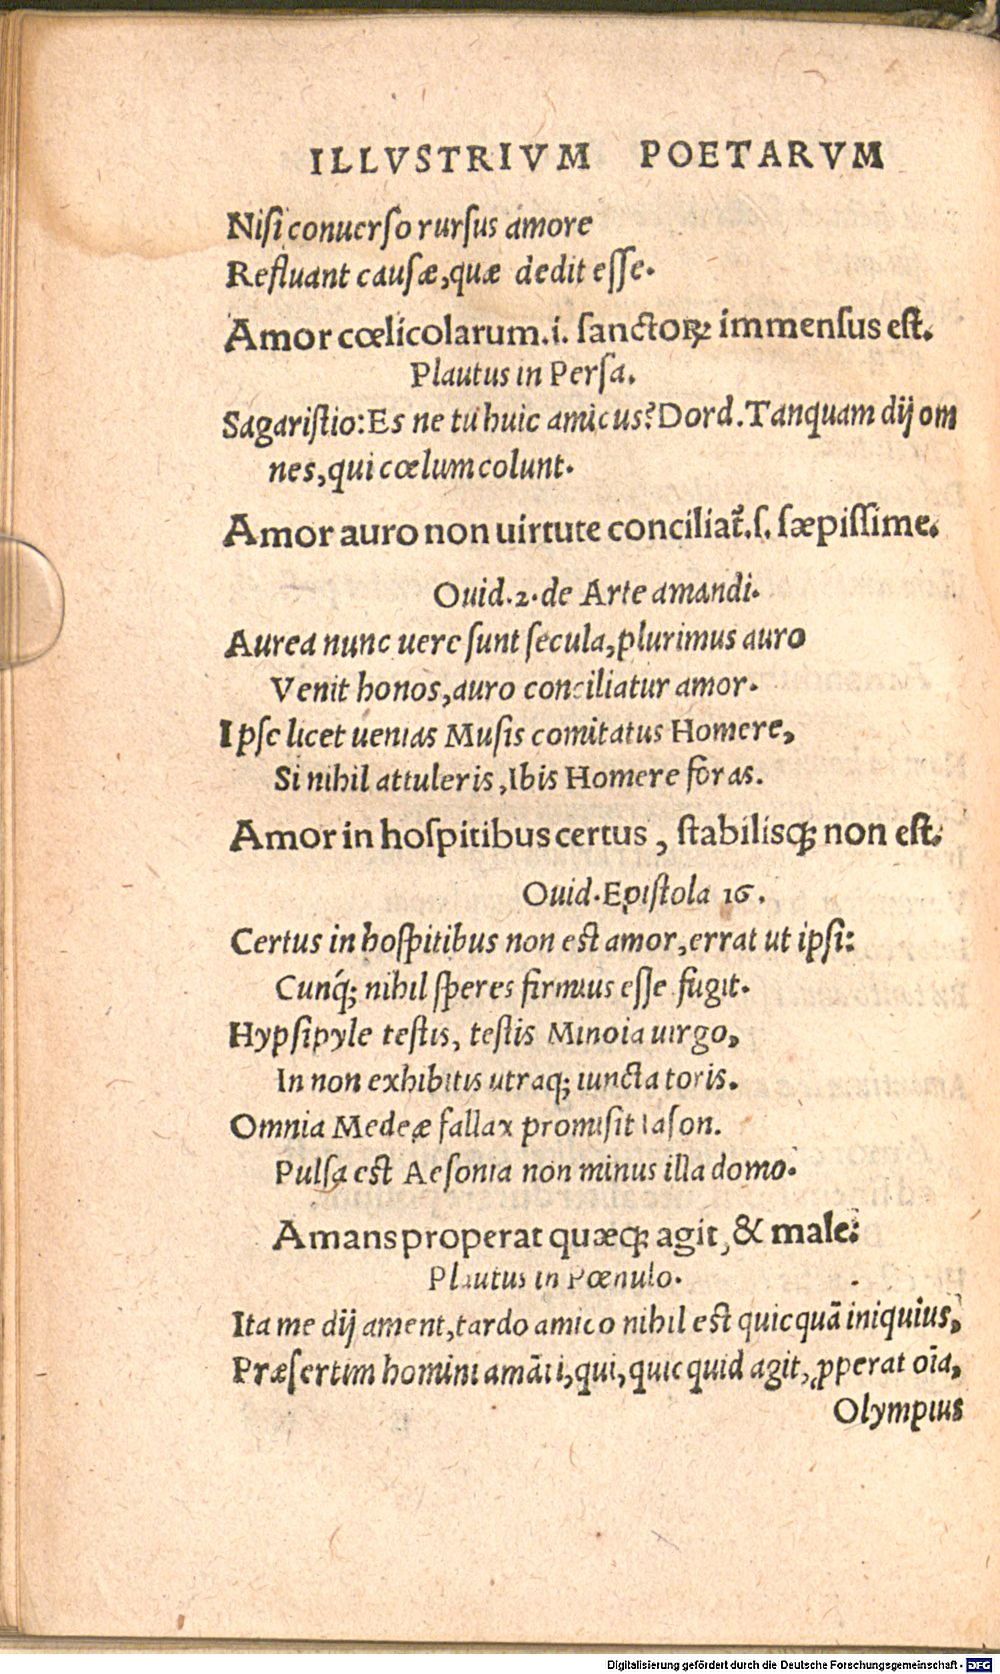 ILLVSTRIVM POETARVM
Niſi conuerſo rurſus amore
Refluant cauſæ, quæ dedit eſſe.
Amor cœlicolarum.i. ſanctoꝝ immenſus eſt.
Plautus in Perſa.
Sagariſtio: Es ne tu huic amicus? Dord. Tanquam dij om
nes, qui cœlum colunt.
Amor auro non uirtute conciliat᷑.ſ. ſæpiſſime.
Ouid.2.de Arte amandi.
Aurea nunc uere ſunt ſecula, plurimus auro
Venit honos, auro conciliatur amor.
Ipſe licet uenias Muſis comitatus Homere,
Si nihil attuleris, Ibis Homere foras.
Amor in hoſpitibus certus, ſtabilisq; non eſt.
Ouid. Epiſtola 16.
Certus in hoſpitibus non eſt amor, errat ut ipſi:
Cunq́; nihil ſperes firmius eſſe fugit.
Hypſipyle teſtis, teſtis Minoia uirgo,
In non exhibitis utraq; iuncta toris.
Omnia Medeæ fallax promiſit Iaſon.
Pulſa eſt Aeſonia non minus illa domo.
Amans properat quæq; agit, & male.
Plautus in Pœnulo.
Ita me dij ament, tardo amico nihil eſt quicquã iniquius,
Præſertim homini amãti, qui, quicquid agit, ꝓperat oĩa,
Olympius
Digitalisierung gefördert durch die Deutsche Forschungsgemeinschaft - DFG